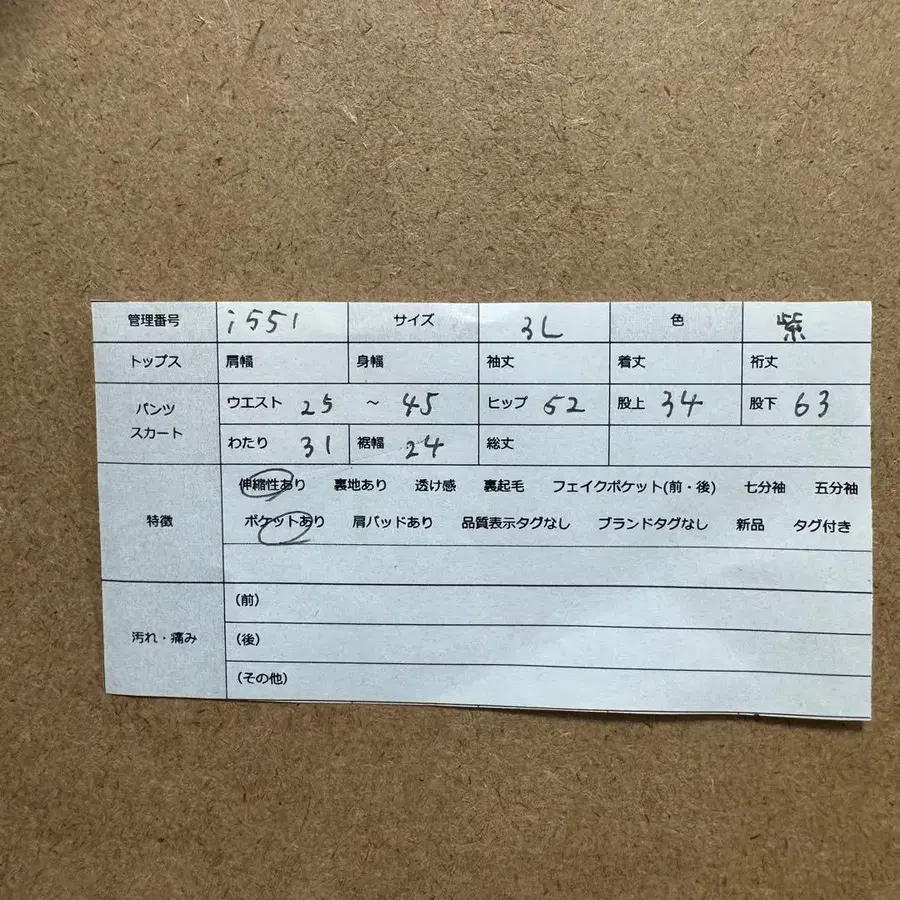 管理番号 i551 サイズ 3L 色 紫
トップス 肩幅 身幅 袖丈 着丈 裄丈
パンツ スカート ウエスト 25 ～ 45 ヒップ 52 股上 34 股下 63
わたり 31 裾幅 24 総丈
特徴 伸縮性あり 裏地あり 透け感 裏起毛 フェイクポケット(前・後) 七分袖 五分袖
ポケットあり 肩パッドあり 品質表示タグなし ブランドタグなし 新品 タグ付き
汚れ・痛み (前)
(後)
(その他)